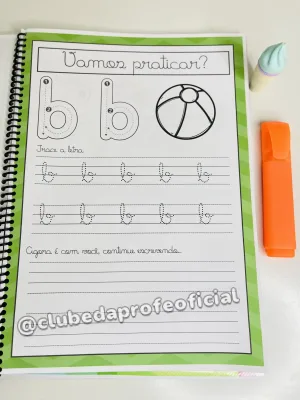 Vamos praticar?
b b
Trace a letra
b b b b b
b b b b b
Agora é com você, continue escrevendo...
@clubedaprofeoficial